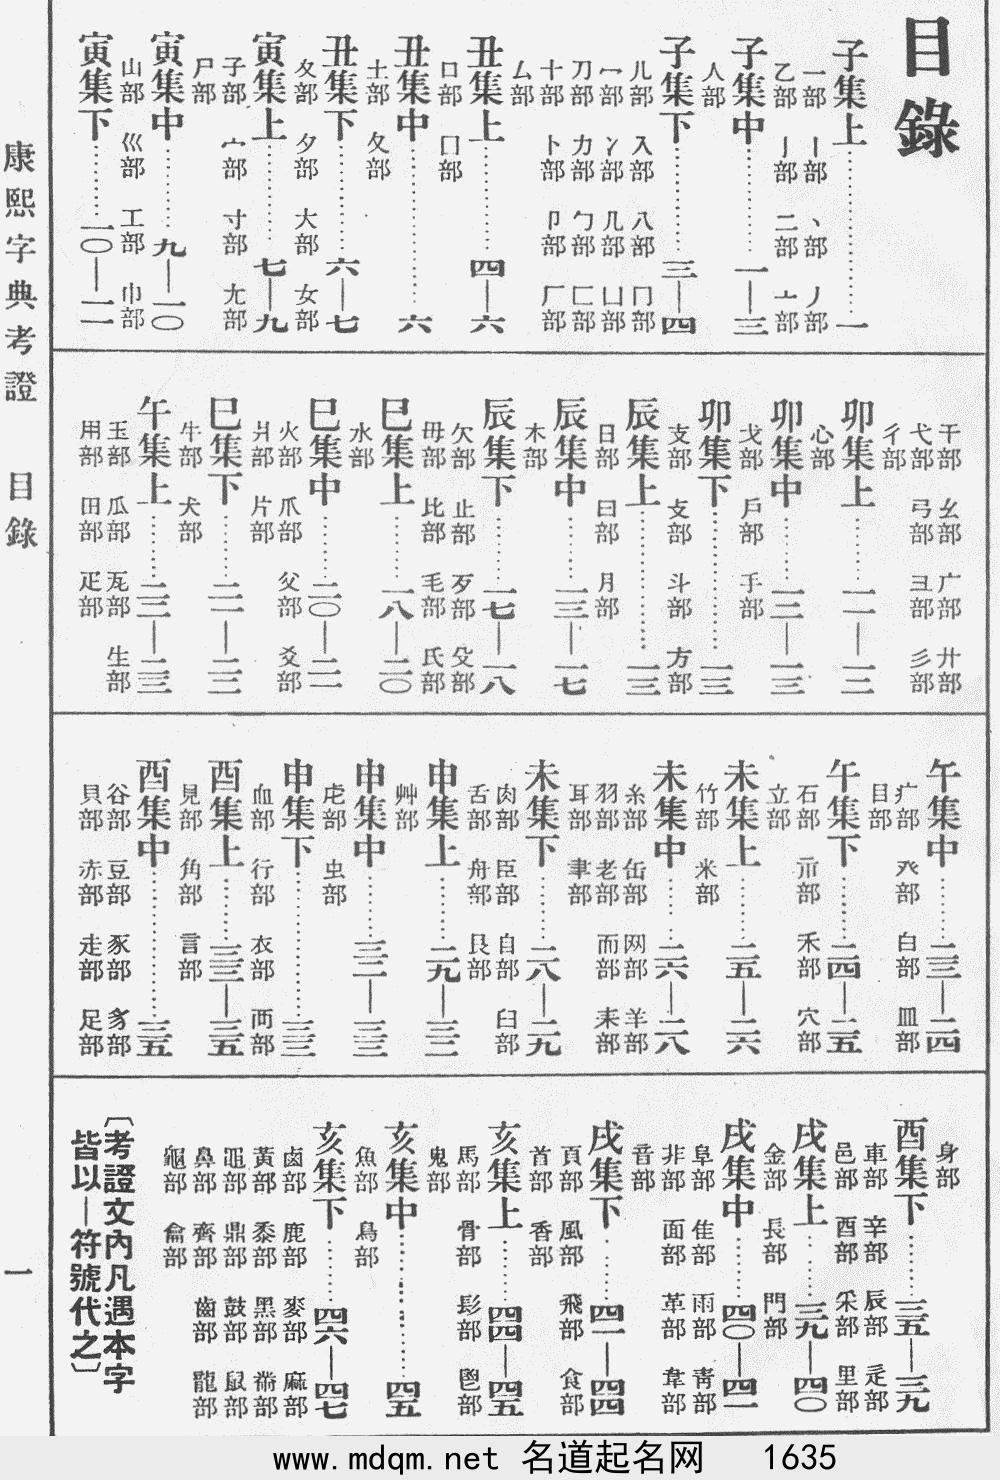 目錄
子集上…………一
一部　丨部　丶部　丿部
乙部　亅部　二部　亠部
子集中…………一—三
人部
子集下…………三—四
儿部　入部　八部　冂部
冖部　冫部　几部　凵部
刀部　力部　勹部　匚部
十部　卜部　卩部　厂部
厶部
丑集上…………四—六
口部　囗部
丑集中…………六
土部　夂部
丑集下…………六—七
夊部　夕部　大部　女部
寅集上…………七—九
子部　宀部　寸部　尢部
尸部
寅集中…………九—一〇
山部　巛部　工部　巾部
寅集下…………一〇—一一
干部　幺部　广部　廾部
弋部　弓部　彐部　彡部
彳部
卯集上…………一一—一二
心部
卯集中…………一二—一三
戈部　戶部　手部
卯集下…………一三
支部　攴部　斗部　方部
辰集上…………一三
日部　曰部　月部
辰集中…………一三—一七
木部
辰集下…………一七—一八
欠部　止部　歹部　殳部
毋部　比部　毛部　氏部
巳集上…………一八—二〇
水部
巳集中…………二〇—二一
火部　爪部　父部　爻部
爿部　片部
巳集下…………二一—二二
牛部　犬部
午集上…………二二—二三
玉部　瓜部　瓦部　生部
用部　田部　疋部
午集中…………二三—二四
疒部　癶部　白部　皿部
目部
午集下…………二四—二五
石部　示部　禾部　穴部
立部
未集上…………二五—二六
竹部　米部
未集中…………二六—二八
糸部　缶部　网部　羊部
羽部　老部　而部　耒部
耳部　聿部
未集下…………二八—二九
肉部　臣部　自部　臼部
舌部　舟部　艮部
申集上…………二九—三二
艸部
申集中…………三二—三三
虍部　虫部
申集下…………三三
血部　行部　衣部　襾部
酉集上…………三三—三五
見部　角部　言部
酉集中…………三五
谷部　豆部　豕部　豸部
貝部　赤部　走部　足部
身部
酉集下…………三五—三九
車部　辛部　辰部　辵部
邑部　酉部　釆部　里部
戌集上…………三九—四〇
金部　長部　門部
戌集中…………四〇—四一
阜部　隹部　雨部　靑部
非部　面部　革部　韋部
音部
戌集下…………四一—四四
頁部　風部　飛部　食部
首部　香部
亥集上…………四四—四五
馬部　骨部　髟部　鬯部
鬼部
亥集中…………四五
魚部　鳥部
亥集下…………四六—四七
鹵部　鹿部　麥部　麻部
黃部　黍部　黑部　黹部
黽部　鼎部　鼓部　鼠部
鼻部　齊部　齒部　龍部
龜部　龠部
〔考證文內凡遇本字
皆以—符號代之〕
康熙字典考證　目錄　一
www.mdqm.net 名道起名网　1635